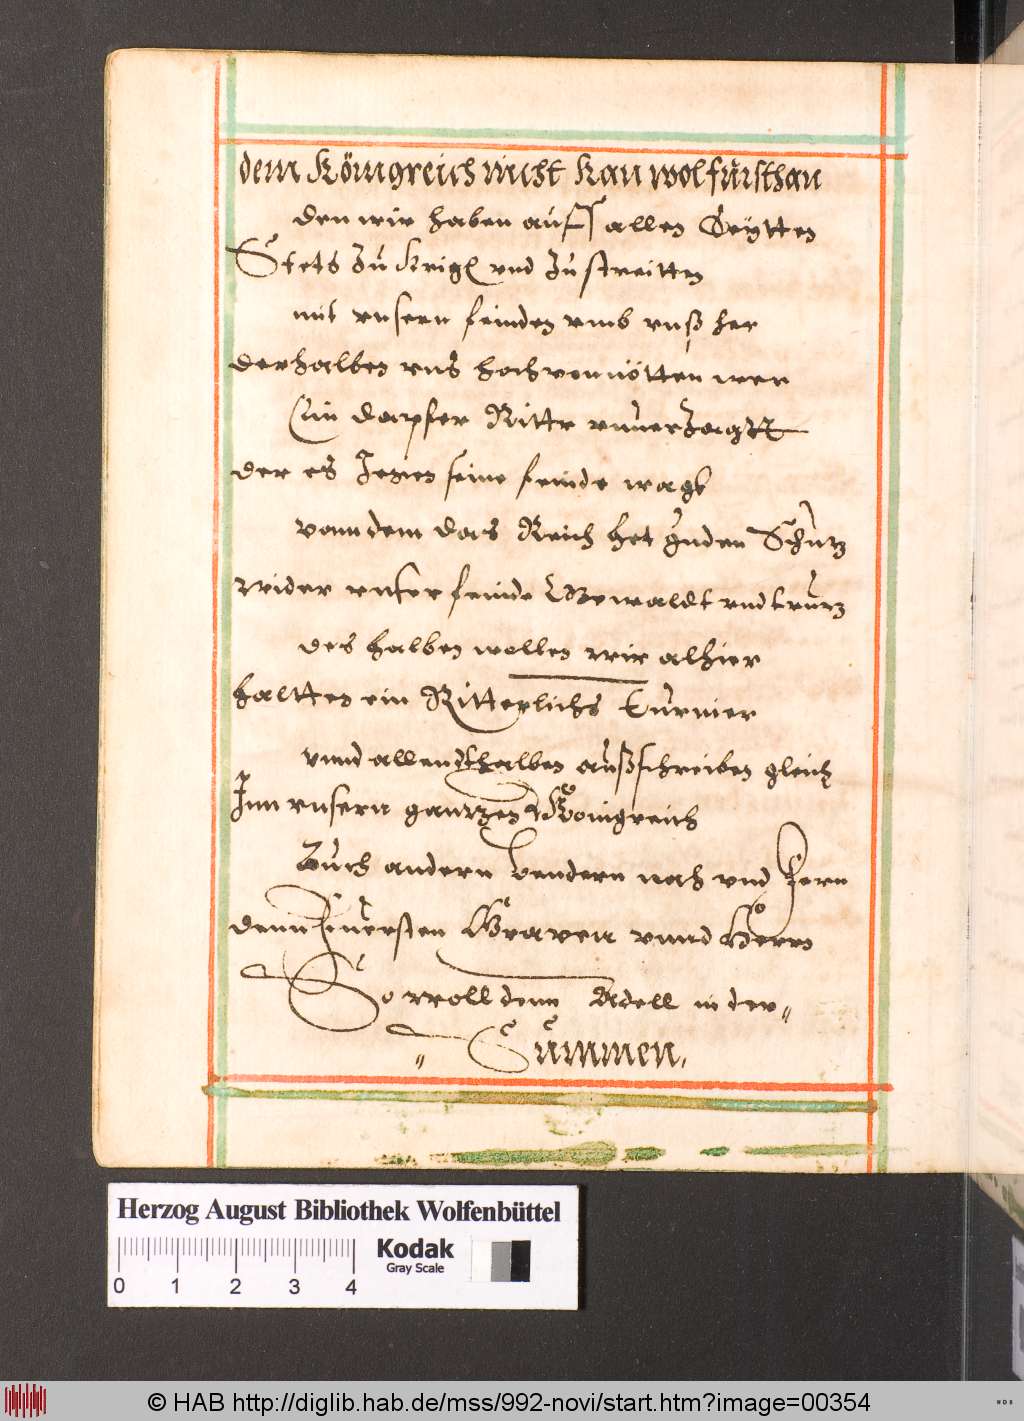 dem Königreich nicht kan wol fürsthan
den wir haben auf allen Seytten
Stets zu krigen vnd zu streitten
mit vnsern feinden vmb vnß her
derhalben vns hoch vonnötten wer
Ein dapfer Rittr vnuerzagtt
der es Jegen seine feinde wagt
vonn dem das Reich het gnden Schutz
wider vnser feinde Gewaldt vnd trutz
des halben wollen wir alhier
haltten ein Ritterlichs turnier
vnnd allendthalben außschreiben gleich
Inn vnsern gantzen Königreich
Auch andern lendern nah vnd fern
denn Fuersten Graven vnnd Herrn
So woll denn Adell in der〃
〃 Summen.
Herzog August Bibliothek Wolfenbüttel
Kodak
Gray Scale
0 1 2 3 4
© HAB http://diglib.hab.de/mss/992-novi/start.htm?image=00354